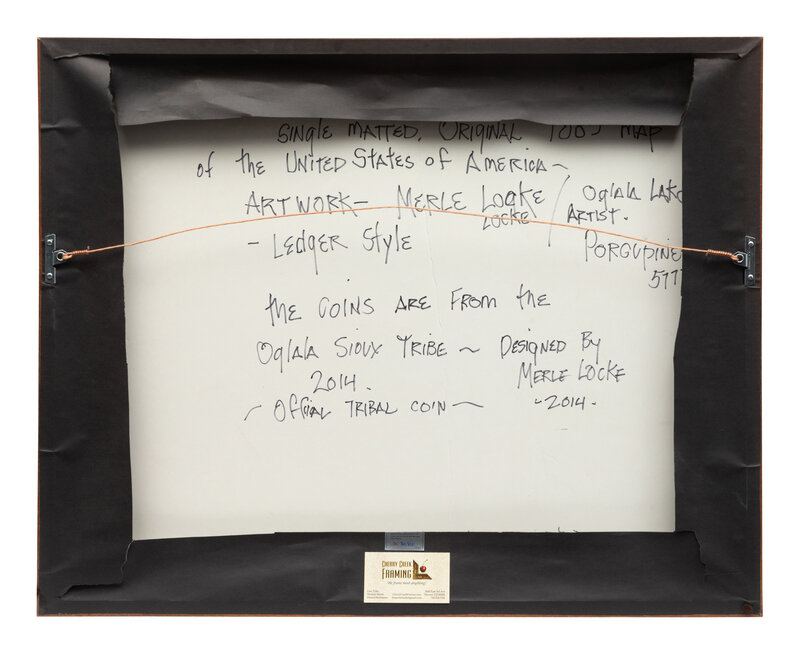 SINGLE MATTED. ORIGINAL MAP
of the UNITED STATES of AMERICA~
ARTWORK- MERLE Locke / Oglala LAK
LOCKE ARTIST.
- LEDGER Style PORCUPINE
577
the COINS ARE FROM the
Oglala SIOUX TRIBE ~ DESIGNED By
2014. MERLE LOCKE
~ Official TRIBAL COIN ~ -2014-
CHERRY CREEK
FRAMING